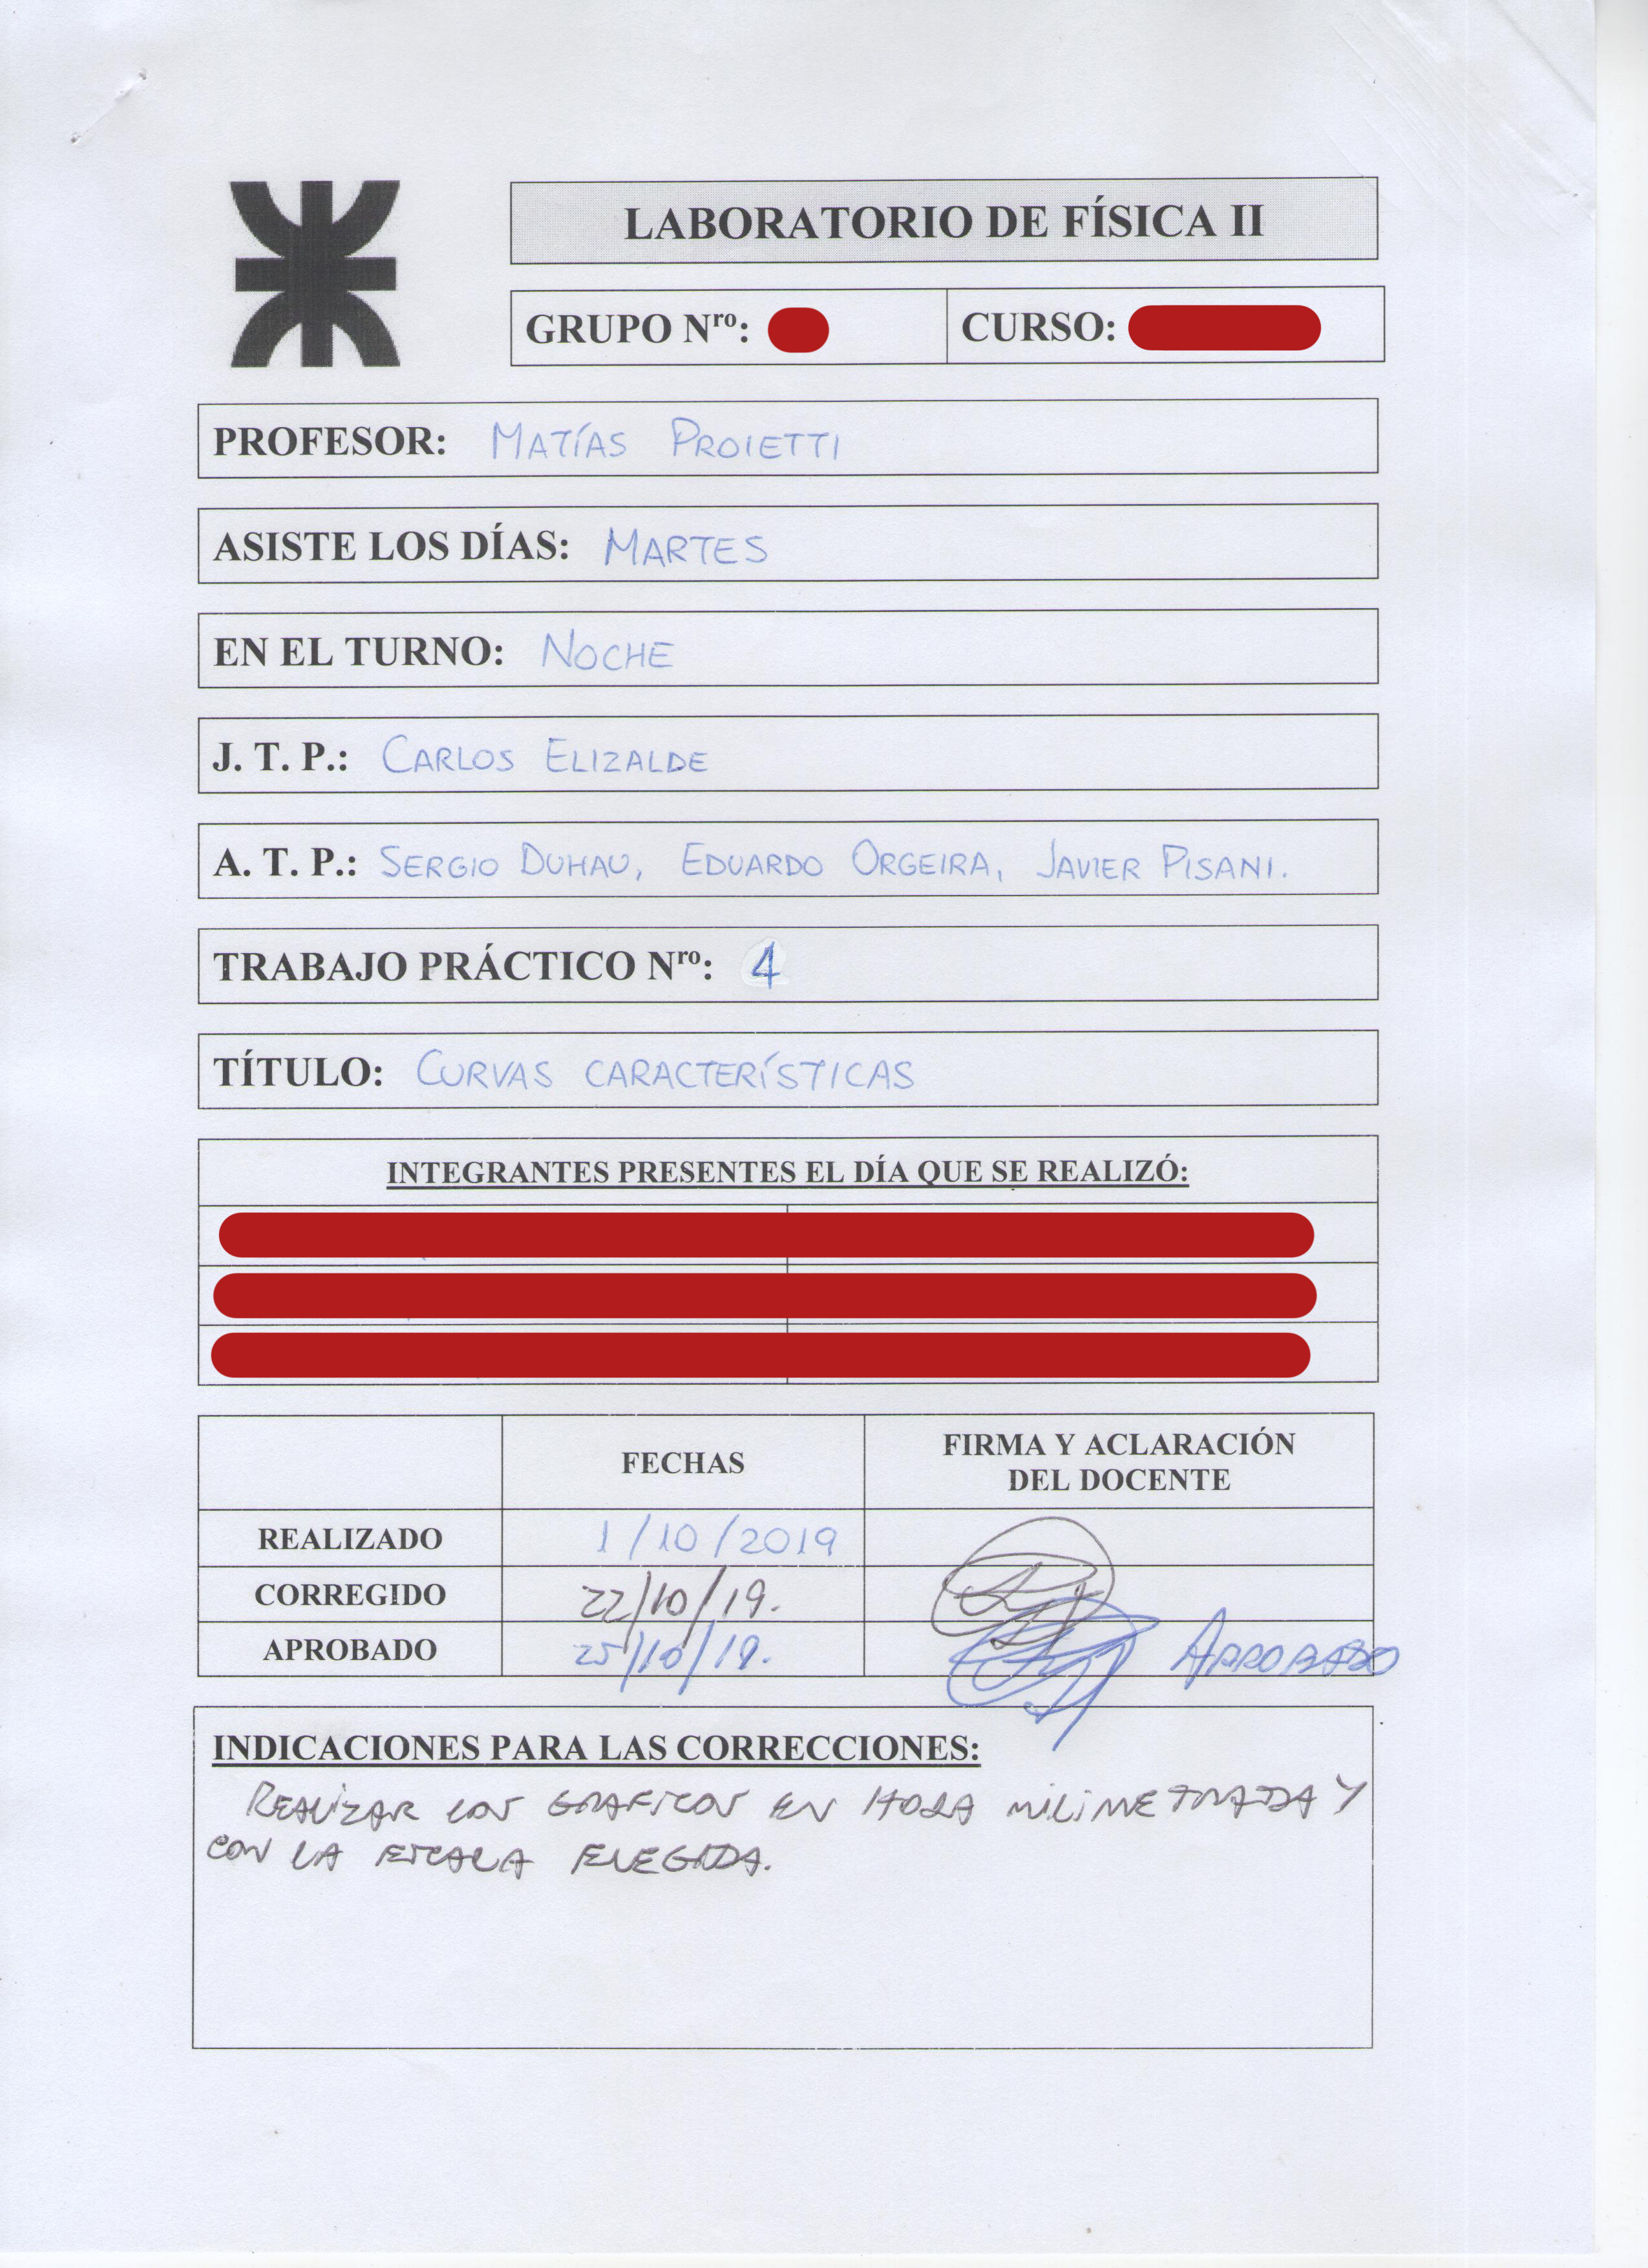 LABORATORIO DE FÍSICA II
GRUPO Nro: CURSO:
PROFESOR: MATÍAS PROIETTI
ASISTE LOS DÍAS: MARTES
EN EL TURNO: NOCHE
J. T. P.: CARLOS ELIZALDE
A. T. P.: SERGIO DUHAU, EDUARDO ORGEIRA, JAVIER PISANI.
TRABAJO PRÁCTICO Nro: 4
TÍTULO: CURVAS CARACTERÍSTICAS
INTEGRANTES PRESENTES EL DÍA QUE SE REALIZÓ:
FECHAS
FIRMA Y ACLARACIÓN
DEL DOCENTE
REALIZADO 1/10/2019
CORREGIDO 22/10/19.
APROBADO 25/10/19. APROBADO
INDICACIONES PARA LAS CORRECCIONES:
REALIZAR LOS GRAFICOS EN HOJA MILIMETRADA Y
CON LA ESCALA ELEGIDA.